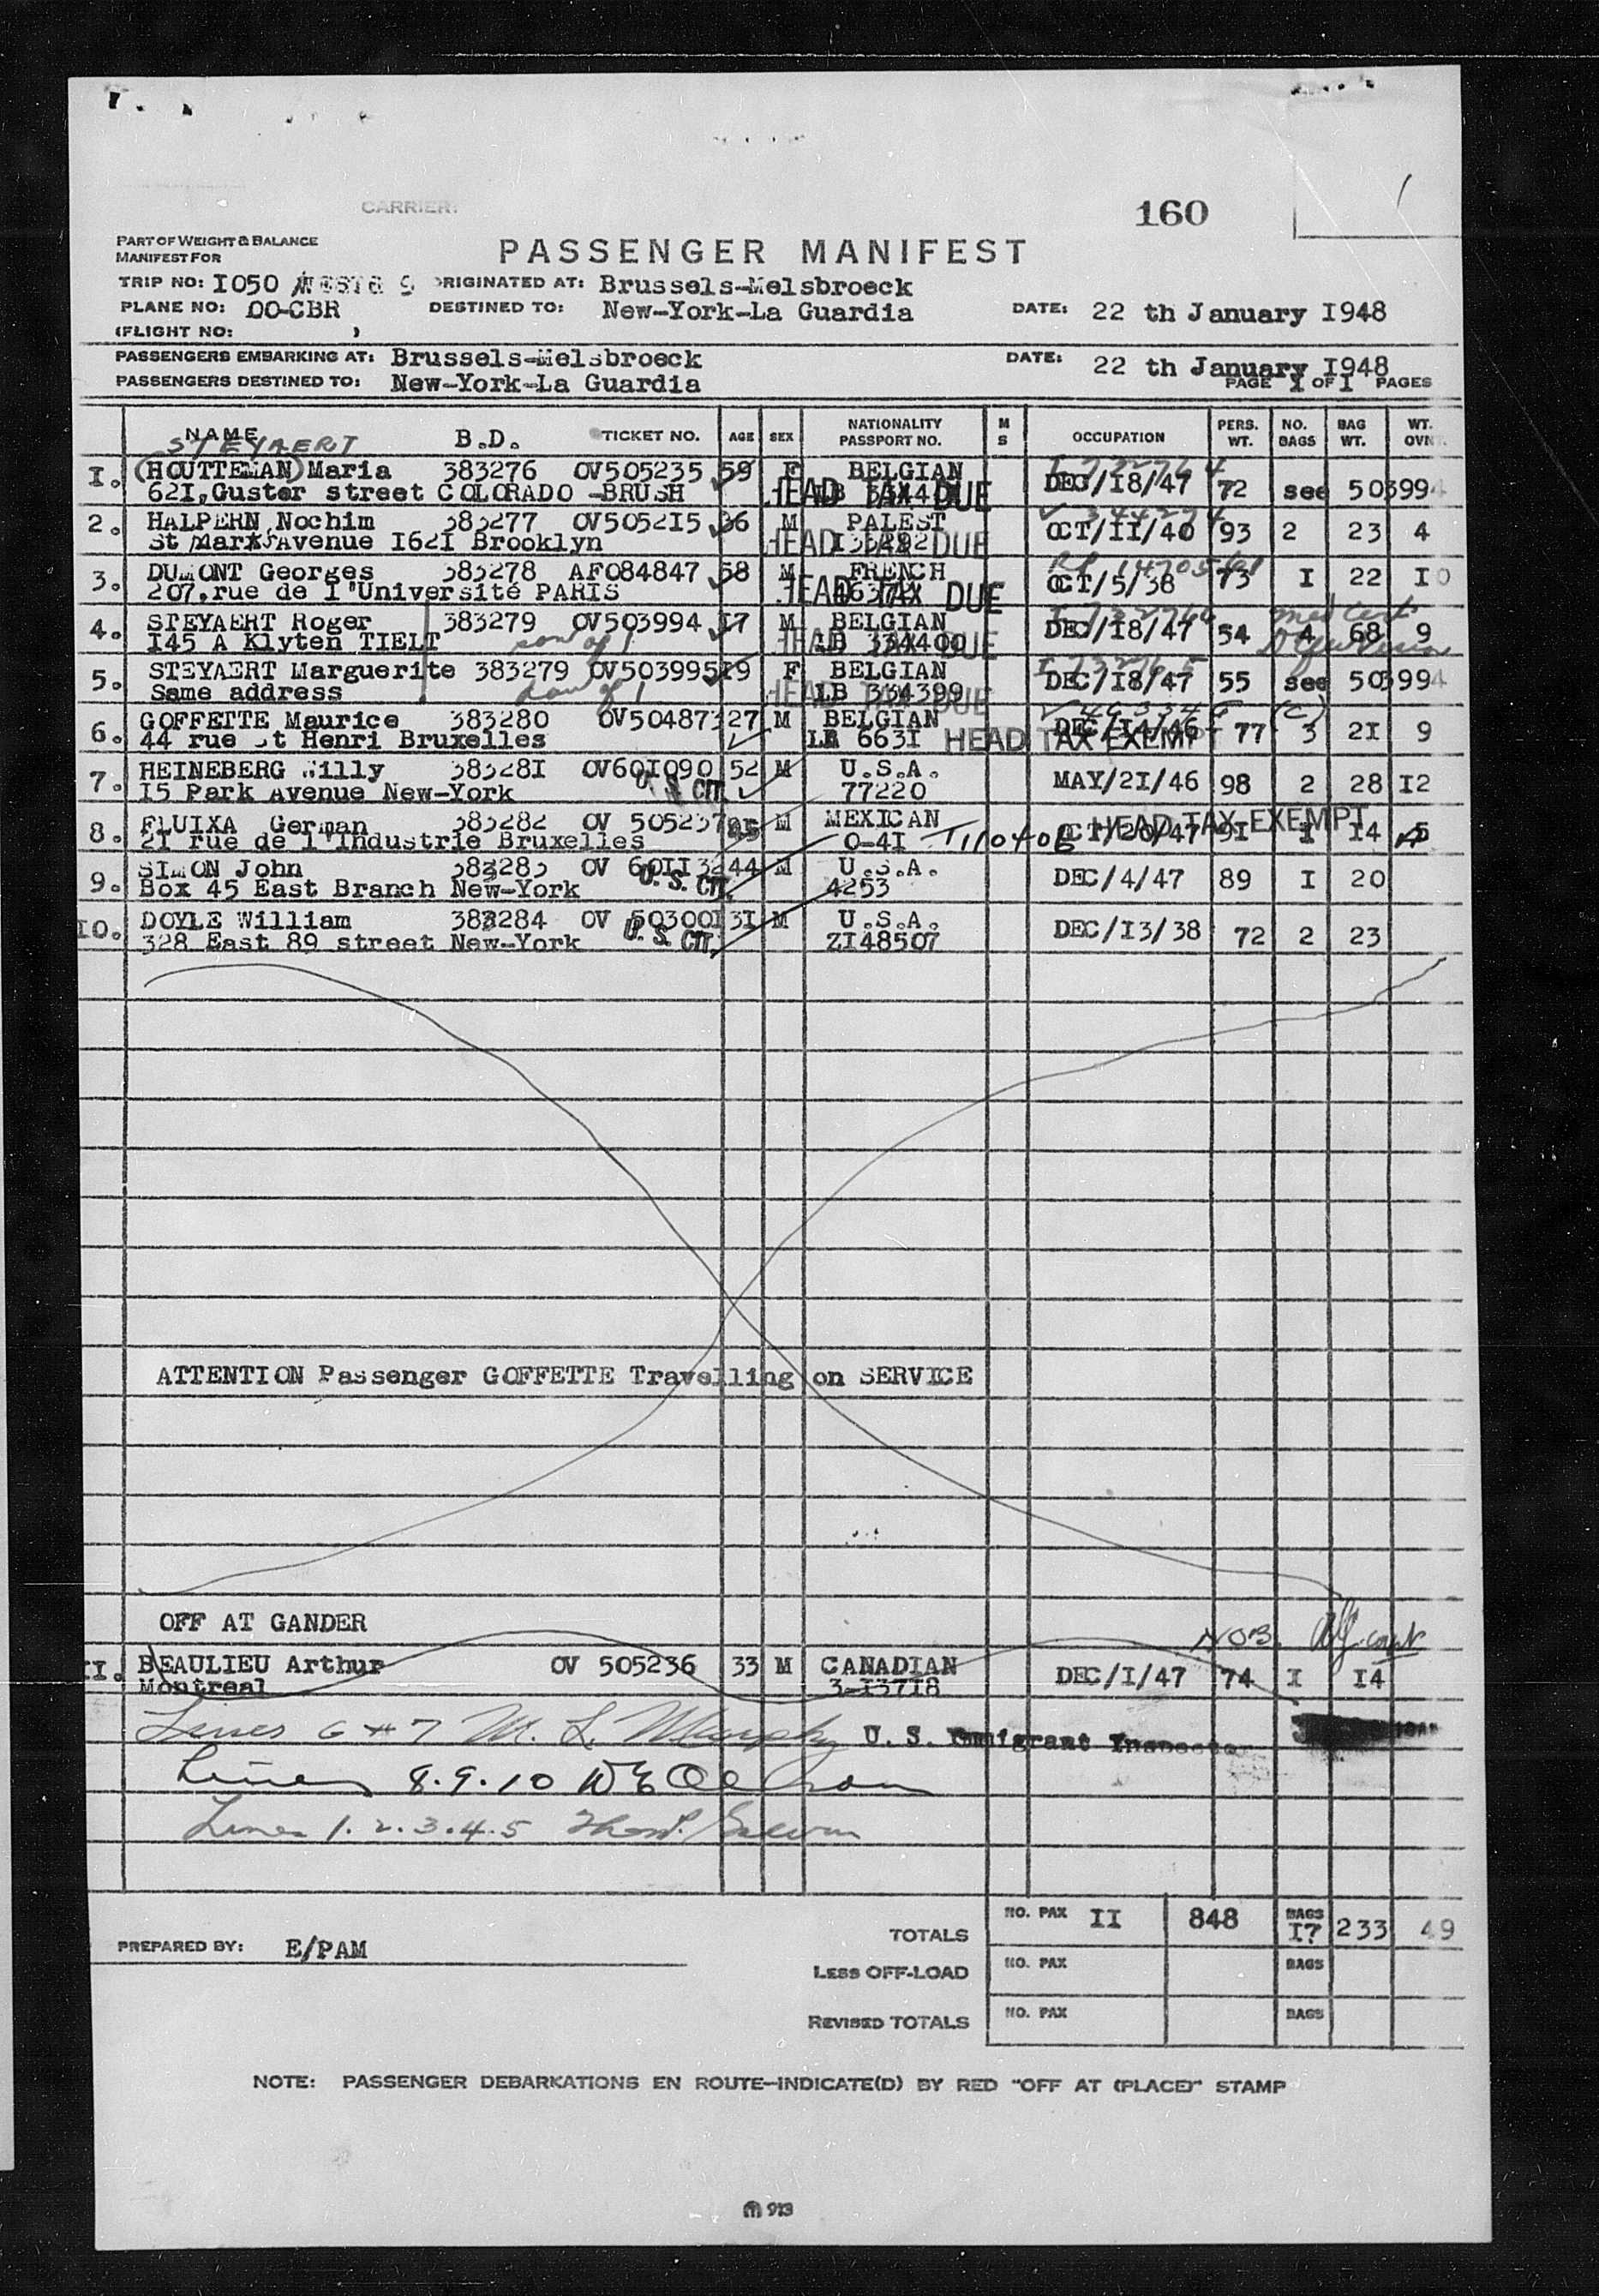 CARRIER:
160
PART OF WEIGHT & BALANCE
MANIFEST FOR
PASSENGER MANIFEST
TRIP NO: I050 ORIGINATED AT: Brussels-Melsbroeck
PLANE NO: OO-CBR DESTINED TO: New-York-La Guardia DATE: 22 th January I948
(FLIGHT NO: )
PASSENGERS EMBARKING AT: Brussels-Melsbroeck DATE: 22 th January I948
PASSENGERS DESTINED TO: New-York-La Guardia PAGE I OF I PAGES
NAME B.D. TICKET NO. AGE SEX NATIONALITY PASSPORT NO. M S OCCUPATION PERS. WT. NO. BAGS BAG WT. WT. OVNT.
STEYAERT
I. (HOUTTEMAN) Maria 383276 OV505235 59 F BELGIAN DEC/I8/47 72 see 503994
62I,Guster street COLORADO -BRUSH HEAD TAX DUE
2. HALPERN Nochim 383277 OV5052I5 36 M PALEST OCT/II/40 93 2 23 4
St Mark's Avenue I62I Brooklyn HEAD TAX DUE
3. DUMONT Georges 383278 AF084847 58 M FRENCH OCT/5/38 73 I 22 I0
207,rue de l'Université PARIS HEAD TAX DUE
4. STEYAERT Roger 383279 OV503994 I7 M BELGIAN DEC/I8/47 54 4 68 9
I45 A Klyten TIELT son of 1 LB 334400 HEAD TAX DUE med cert
5. STEYAERT Marguerite 383279 OV503995 I9 F BELGIAN DEC/I8/47 55 see 503994
Same address dau of 1 LB 334399 HEAD TAX DUE
6. GOFFETTE Maurice 383280 OV504873 27 M BELGIAN DEC/I4/46 77 3 2I 9
44 rue St Henri Bruxelles 663I HEAD TAX EXEMPT
7. HEINEBERG Willy 38328I OV60I090 52 M U.S.A. MAY/2I/46 98 2 28 I2
I5 Park Avenue New-York U.S. CIT. 77220
8. FLUIXA German 383282 OV 505237 M MEXICAN OCT/20/47 9I I I4 5
2I rue de l'Industrie Bruxelles 0-4I HEAD TAX EXEMPT
9. SIMON John 383283 OV 60II32 44 M U.S.A. DEC/4/47 89 I 20
Box 45 East Branch New-York U.S. CIT. 4253
I0. DOYLE William 383284 OV 50300I 3I M U.S.A. DEC/I3/38 72 2 23
328 East 89 street New-York U.S. CIT. ZI48507
ATTENTION Passenger GOFFETTE Travelling on SERVICE
OFF AT GANDER
NOB
II. BEAULIEU Arthur OV 505236 33 M CANADIAN DEC/I/47 74 I I4
Montreal 3-I37I8
Lines 6 + 7 M. L. Murphy U. S. Immigrant Inspector
Lines 8.9.10
Lines 1.2.3.4.5
TOTALS NO. PAX II 848 BAGS I7 233 49
PREPARED BY: E/PAM
LESS OFF-LOAD NO. PAX BAGS
REVISED TOTALS NO. PAX BAGS
NOTE: PASSENGER DEBARKATIONS EN ROUTE-INDICATE(D) BY RED "OFF AT (PLACE)" STAMP
913